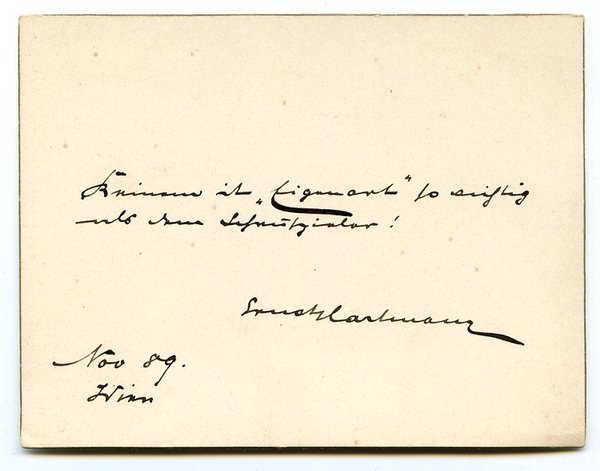 Keinem ist „Eigenart“ so wichtig
als dem Schauspieler!
Ernst Hartmann
Nov 89.
Wien